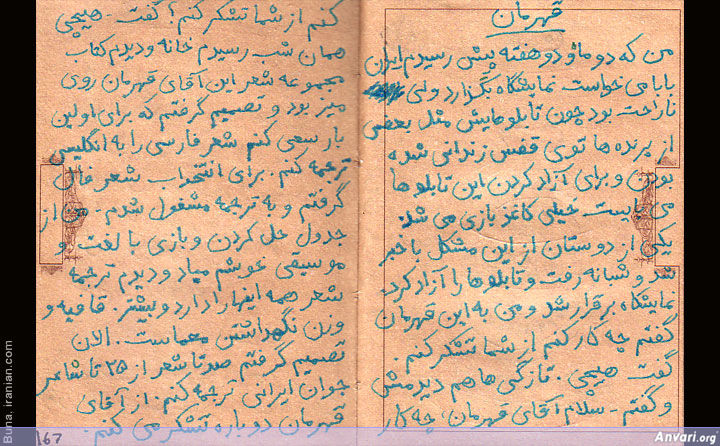 قهرمان
من که دو ماه و دو هفته پیش رسیدم ایران
بابا می خواست نمایشگاه بگذارد ولی
ناراحت بود چون تابلوهایش مثل بعضی
از پرنده ها توی قفس زندانی شده
بودن و برای آزاد کردن این تابلوها
می بایست خیلی کاغذ بازی می شد.
یکی از دوستان از این مشکل با خبر
شد و شبانه رفت و تابلوها را آزاد کرد.
نمایشگاه برقرار شد و من به این قهرمان
گفتم چه کار کنم از شما تشکر کنم.
گفت هیچی. تازگی ها هم دیدمش
و گفتم - سلام آقای قهرمان، چه کار
کنم از شما تشکر کنم؟ گفت - هیچی
همان شب رسیدم خانه و دیدم کتاب
مجموعه شعر این آقای قهرمان روی
میز بود و تصمیم گرفتم که برای اولین
بار سعی کنم شعر فارسی را به انگلیسی
ترجمه کنم. برای انتخاب شعر فال
گرفتم و به ترجمه مشغول شدم. من از
جدول حل کردن و بازی با لغت و
موسیقی خوشم میاد و دیدم ترجمه
شعر همه اینها را دارد و بیشتر. قافیه و
وزن نگهداشتن معماست. الان
تصمیم گرفتم صد تا شعر از ۲۵ تا شاعر
جوان ایرانی ترجمه کنم. از آقای
قهرمان دوباره تشکر می کنم.
167
Buna, iranian.com
Anvari.org